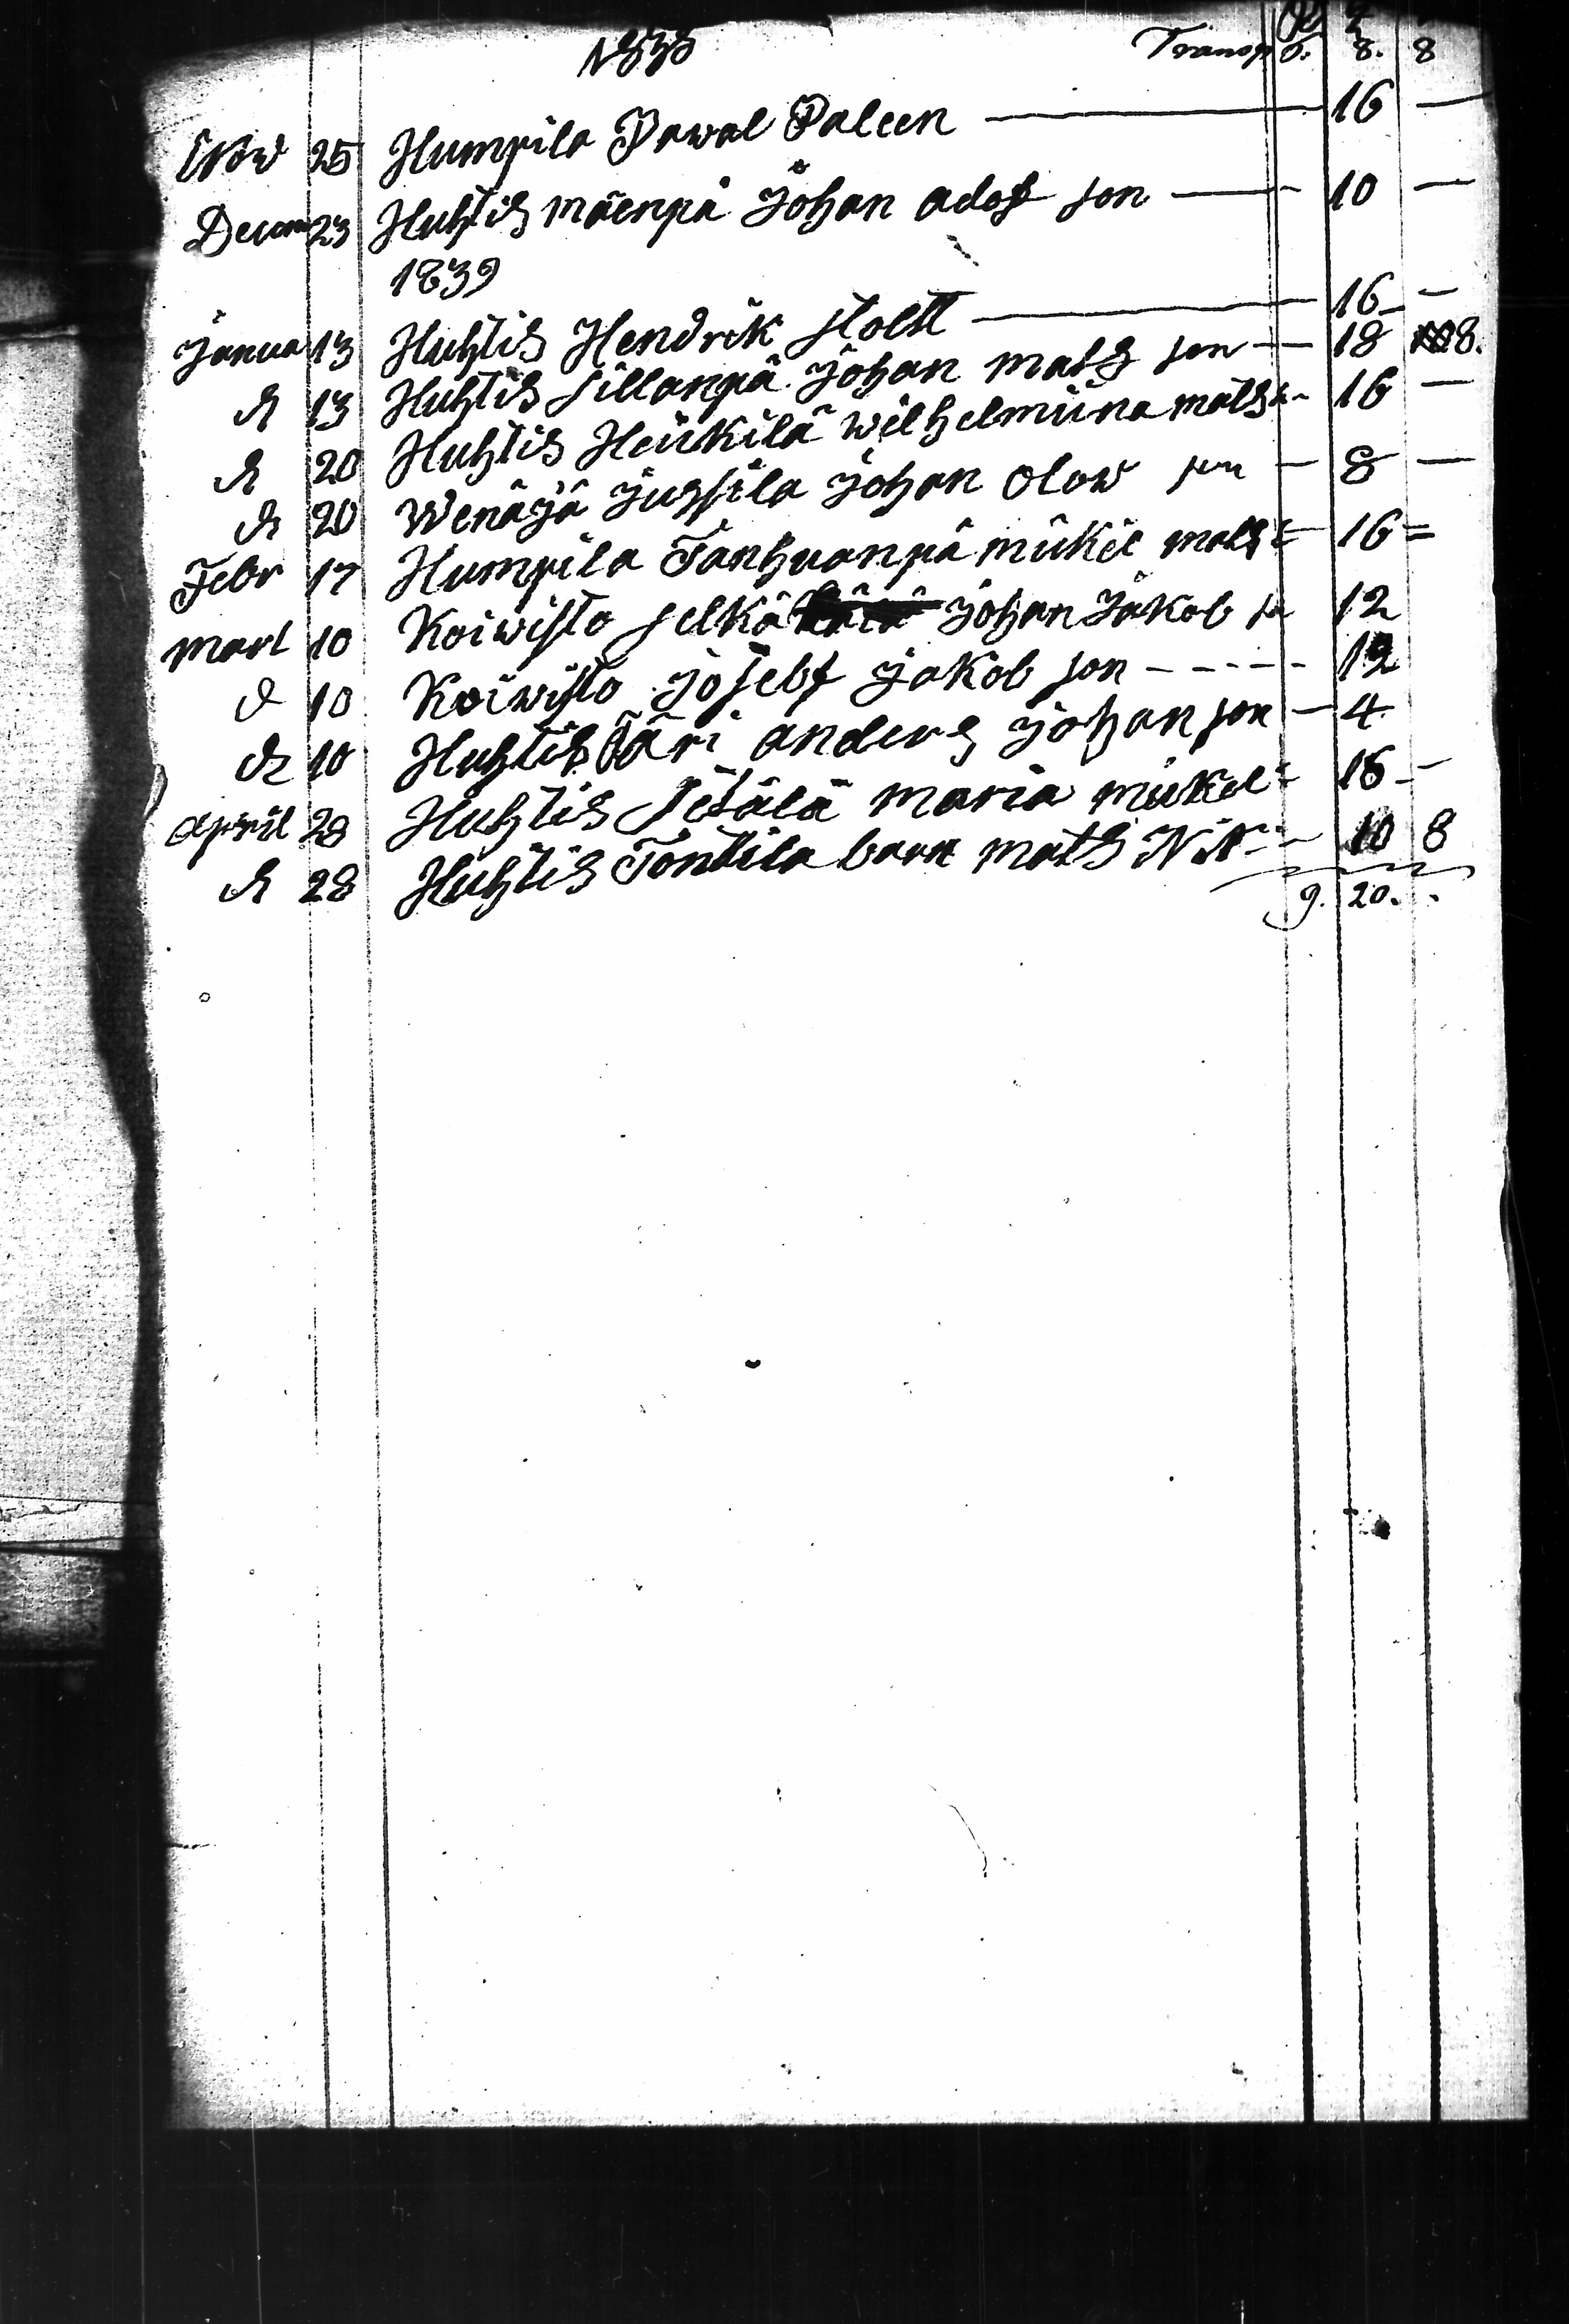 1838 Transp 6. 8. 8
Nov 25 Humpila Pawal Paleen — 16 —
Decem 23 Huhtis mäenpä Johan adof son — 10 —
1839
Janua 13 Huhtis Hendrik stolt — 16 —
d 13 Huhtis sillanpä Johan mats son — 18 8.
d 20 Huhtis Heikilä wilhelmiina mats — 16 —
d 20 Wenäjä Jussila Johan Olow son — 8 —
Febr 17 Humpila Tanhuanpä mikel mats — 16 =
mart 10 Koiwisto selkä Johan Jakob so 12
d 10 Koiwisto Josebf Jakob son - - - - - 12
d 10 Huhtis Äri anders Johan son — 4
april 28 Huhtis Petälä maria mikel 16 —
d 28 Huhtis Tontila barn mats 10 8
9. 20. .